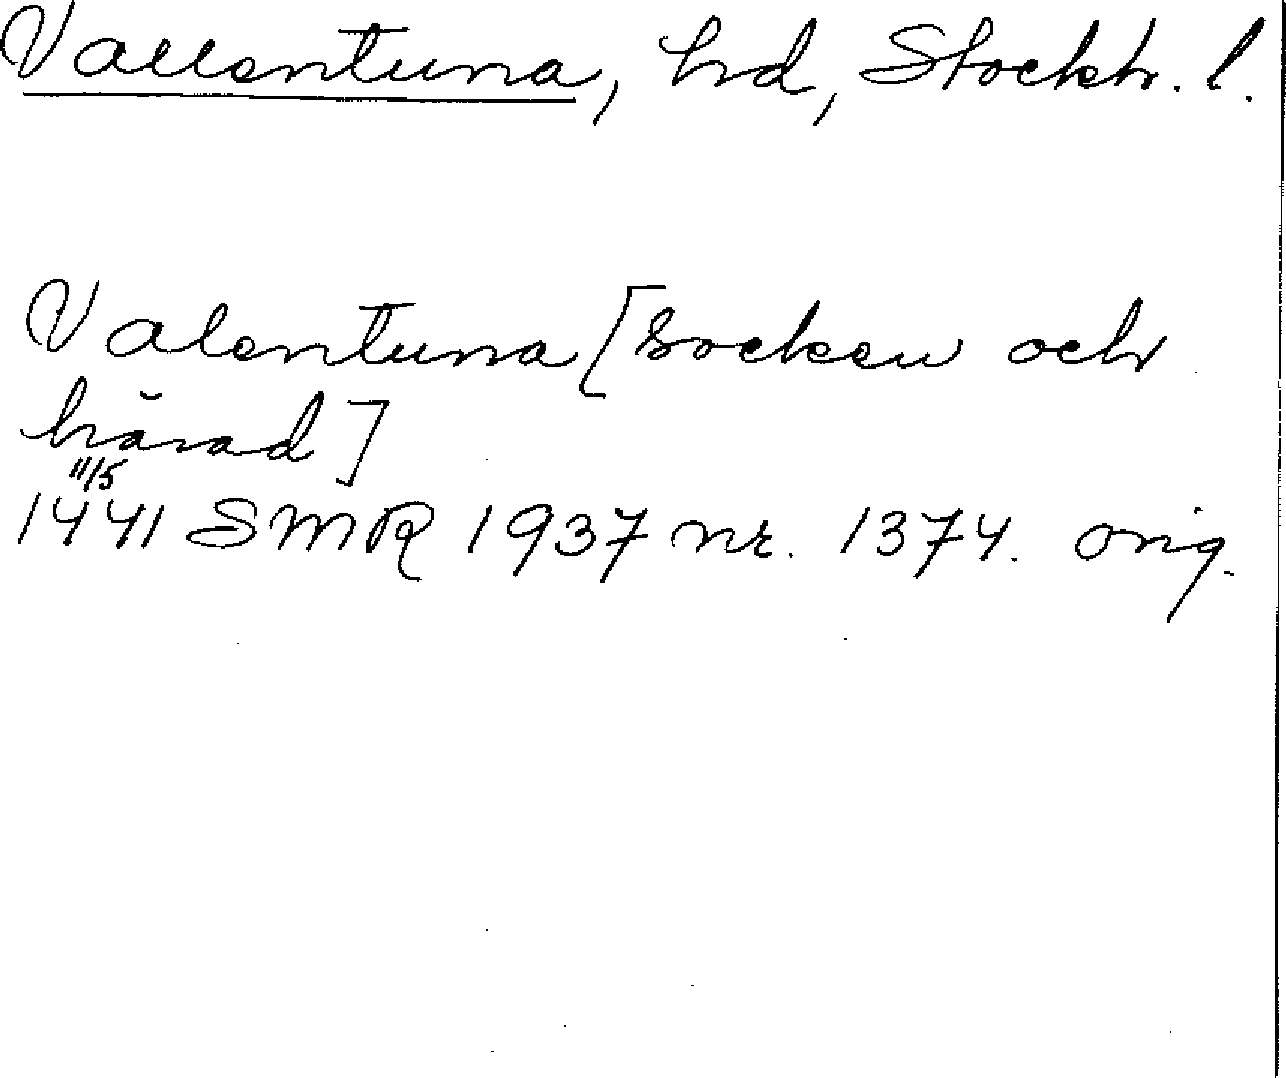 Vallentuna, hd, Stockh. l.
Valentuna [socken och
härad]
11/5
1441 SMR 1937 nr. 1374. orig.